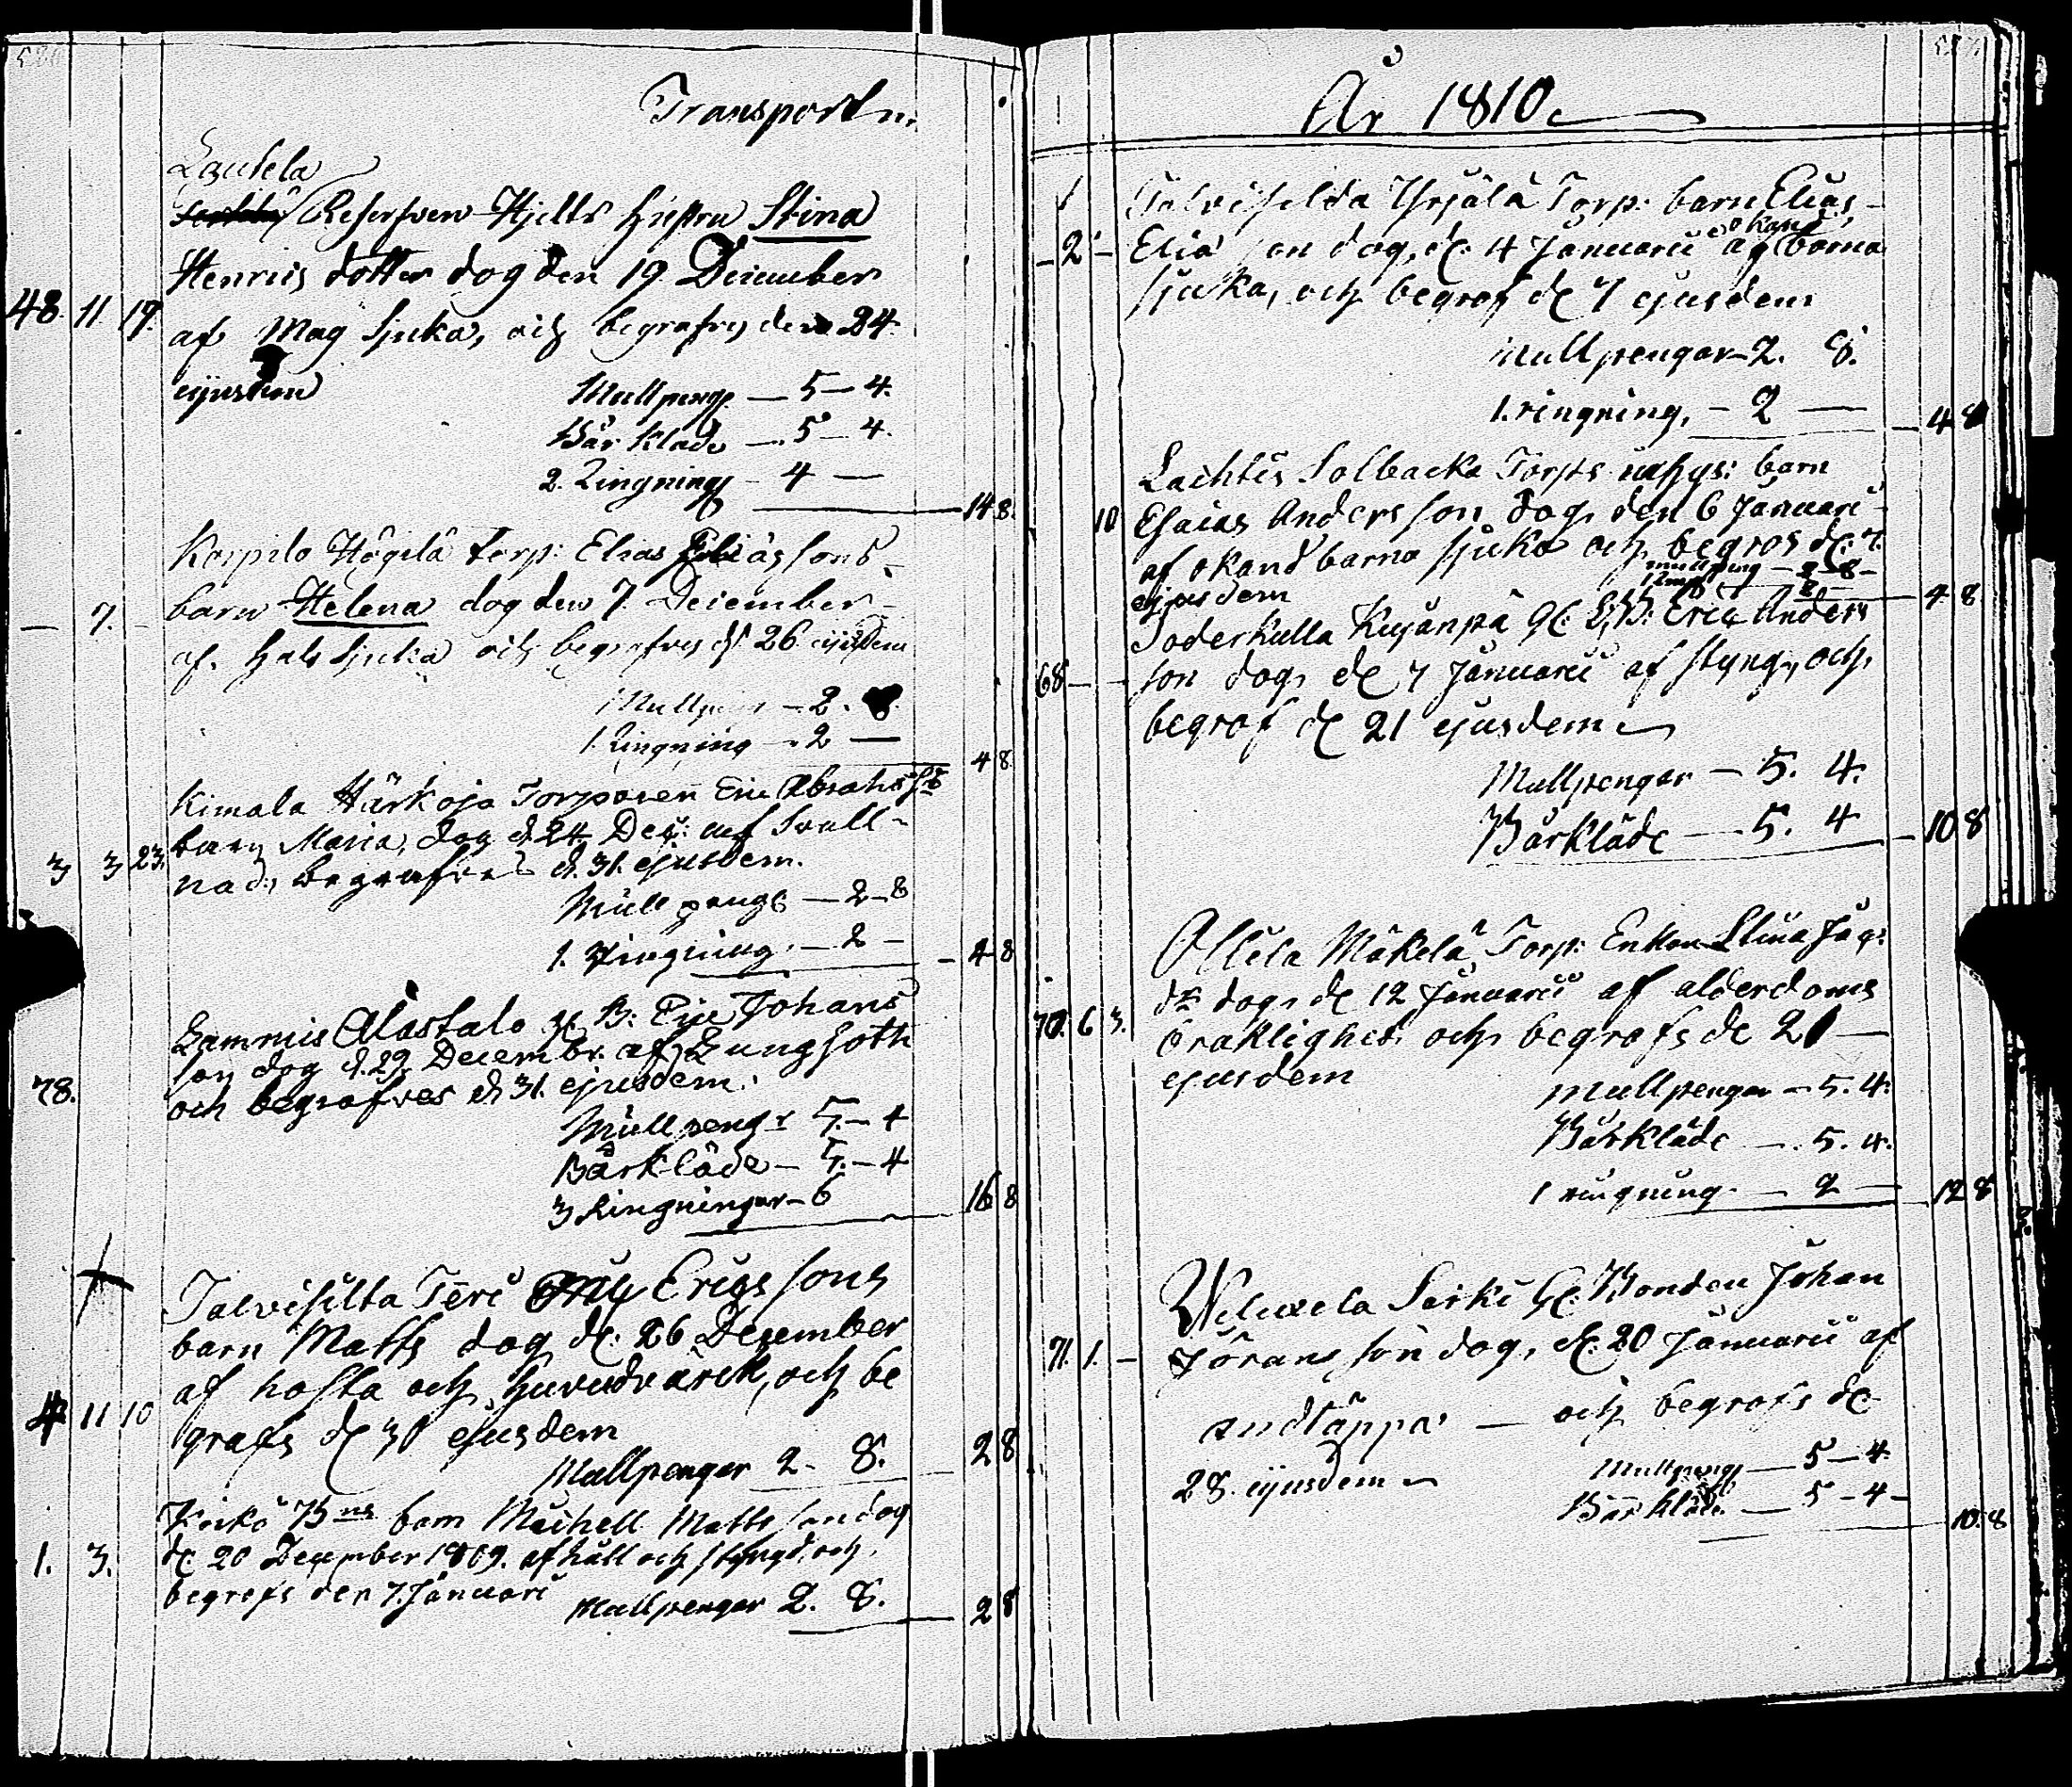 Transport
Lautela
Reserfven Hjelts Hustru Stina
Henrics dotter dog den 19 December
48. 11. 19.
af Mag Sjuka, och begrafves den 24
ejusdem
Mullpeng. — 5 — 4.
Bår Kläde — 5 — 4.
2. Ringning — 4 —
14 8.
Korpilo Högilä torp: Elias Eliäs sons
— 7. — barn Helena dog den 7. December
af. Hals Sjuka och begrafves d. 26 ejusdem
Mullpeng — 2. 8.
1. Ringning — 2 —
4 8
Kimala Härkoja Torparen Eric Abrahs
barn Maria, dog d. 24 Dec: af Svull-
3 3 23.
nad, begrafves d. 31. ejusdem.
Mull peng — 2 — 8
1. Ringning. — 2 —
4 8
Lammis Alastalo B: Eric Johans
son dog d. 29 December af Lungsoth
78.
och begrafves d. 31. ejusdem.
Mullpeng 5. — 4
Bårkläde — 5. — 4
3 Ringningar — 6
16 8
Talvisilta Teri Eric Erics sons
barn Matts dog d. 26 Desember
af hosta och Huvudvärck, och be
11 10
grafs d 30 ejusdem
Mullpengar 2 - 8.
2 8
barn Michell Matts son dog
1. 3. d 20 December 1809. af håll och styngd, och
begrafs den 7. Januari
Mullpengar 2. 8.
2 8
År 1810
Talvisilda Yrjälä Torp: barn Elias
okand
- 2 - Elia son dog, d. 4 Januari af barna
sjuka, och begraf d 7 ejusdem
Mullpengar - 2. 8.
1. ringning, - 2 —
4 8
Lachtis Solbacka Torps barn
10 Esaias Anders son dog, den 6 Januari
af okand barna sjuka och begros d. 7.
mullpeng — 2 - 8 -
ejusdem
4 8
Söderkulla Kujänpä Eric Anders
68 — — son dog, d 7 Januari af styng, och
begraf d 21 ejusdem
Mullpengar — 5. 4.
Bårkläde — 5. 4
10 8
Ollila Mäkelä Torp: Enkan Stina Jac:
dr dog, d 12 Januari af alderdoms
70. 6 3.
braklighet och begrafs d 21 —
ejusdem
Mullpengar — 5. 4.
Bårkläde — 5. 4.
1 ringning. — 2 —
12 8
Weluxela Sarki Bonden Johan
71. 1. — Jörans son dog, d. 20 Januari af
andtäppa — och begrafs d
28. ejusdem
Mullpeng — 5 — 4.
Bår kläde — 5 - 4 -
10. 8